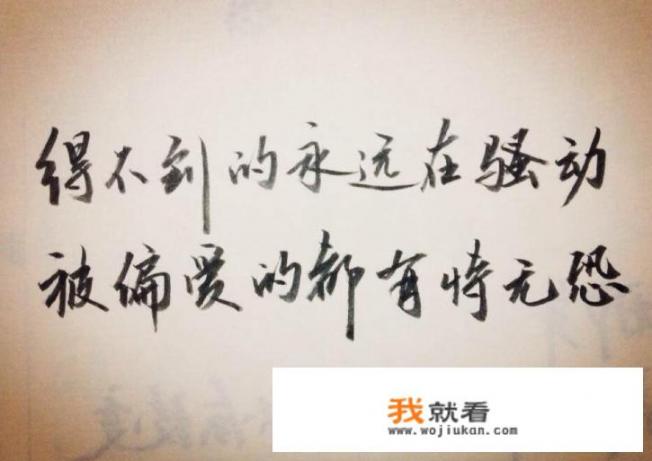 得不到的永远在骚动
被偏爱的都有恃无恐
我就看
www.wojiukan.com